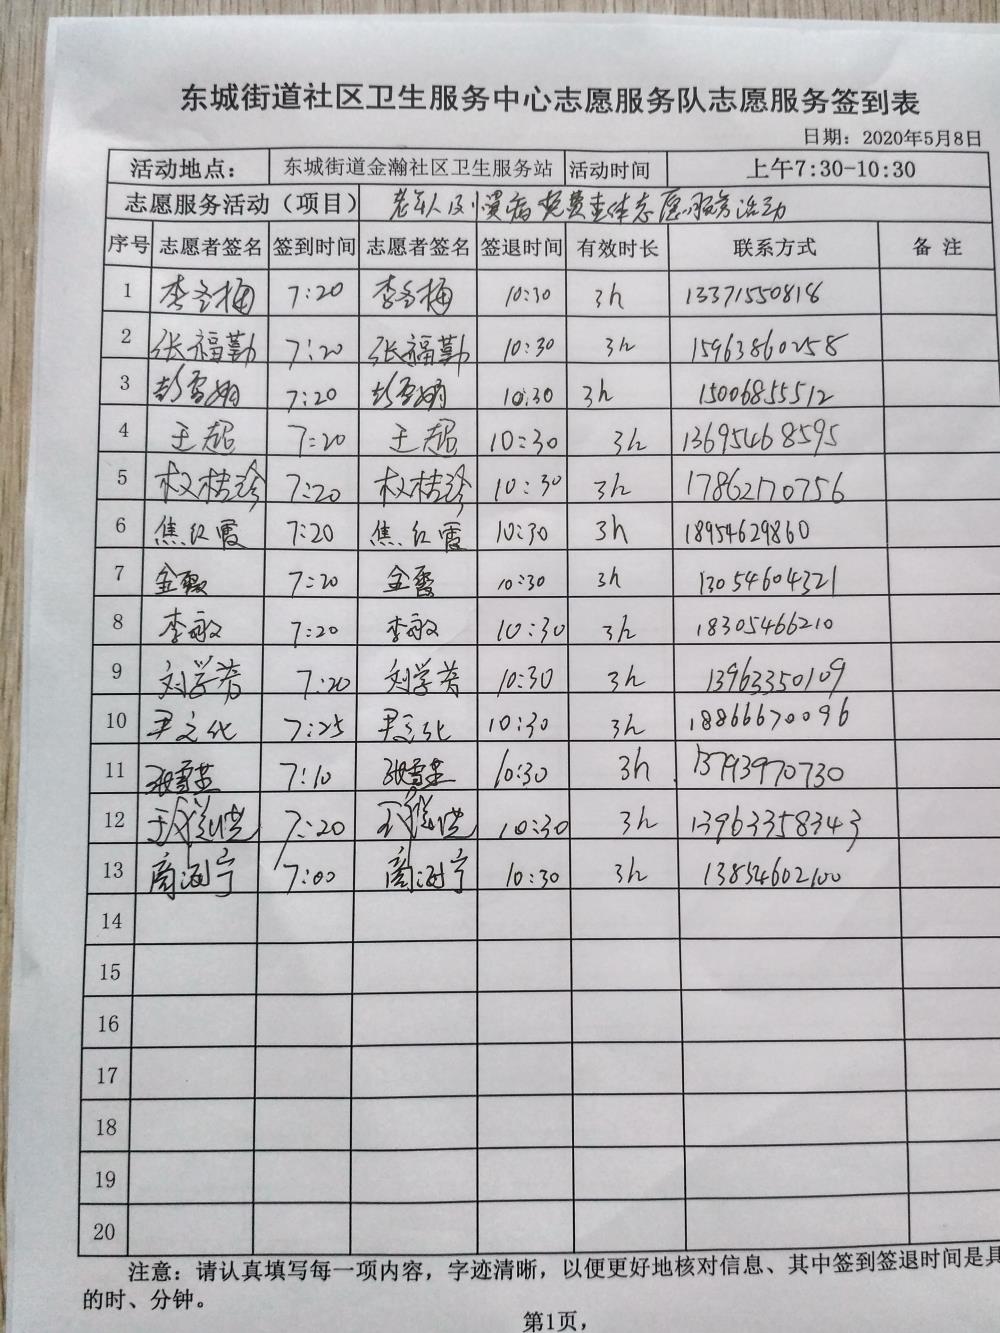 东城街道社区卫生服务中心志愿服务队志愿服务签到表
日期：2020年5月8日
活动地点： 东城街道金瀚社区卫生服务站 活动时间 上午7:30-10:30
志愿服务活动（项目） 老年人及慢病免费查体志愿服务活动
序号 志愿者签名 签到时间 志愿者签名 签退时间 有效时长 联系方式 备 注
1 李冬梅 7:20 李冬梅 10:30 3h 13371550818
2 张福勤 7:20 张福勤 10:30 3h 15963860258
3 彭雪娟 7:20 彭雪娟 10:30 3h 15006855512
4 王超 7:20 王超 10:30 3h 13695468595
5 权桂珍 7:20 权桂珍 10:30 3h 17862170756
6 焦红霞 7:20 焦红霞 10:30 3h 18954629860
7 金霞 7:20 金霞 10:30 3h 13054604321
8 李敏 7:20 李敏 10:30 3h 18305466210
9 刘学芳 7:20 刘学芳 10:30 3h 13963350109
10 尹文化 7:25 尹文化 10:30 3h 18866670096
11 张雪英 7:10 张雪英 10:30 3h 13793970730
12 7:20 10:30 3h 13963358343
13 商海宁 7:00 商海宁 10:30 3h 13854602100
14
15
16
17
18
19
20
注意：请认真填写每一项内容，字迹清晰，以便更好地核对信息、其中签到签退时间是具
的时、分钟。
第1页，